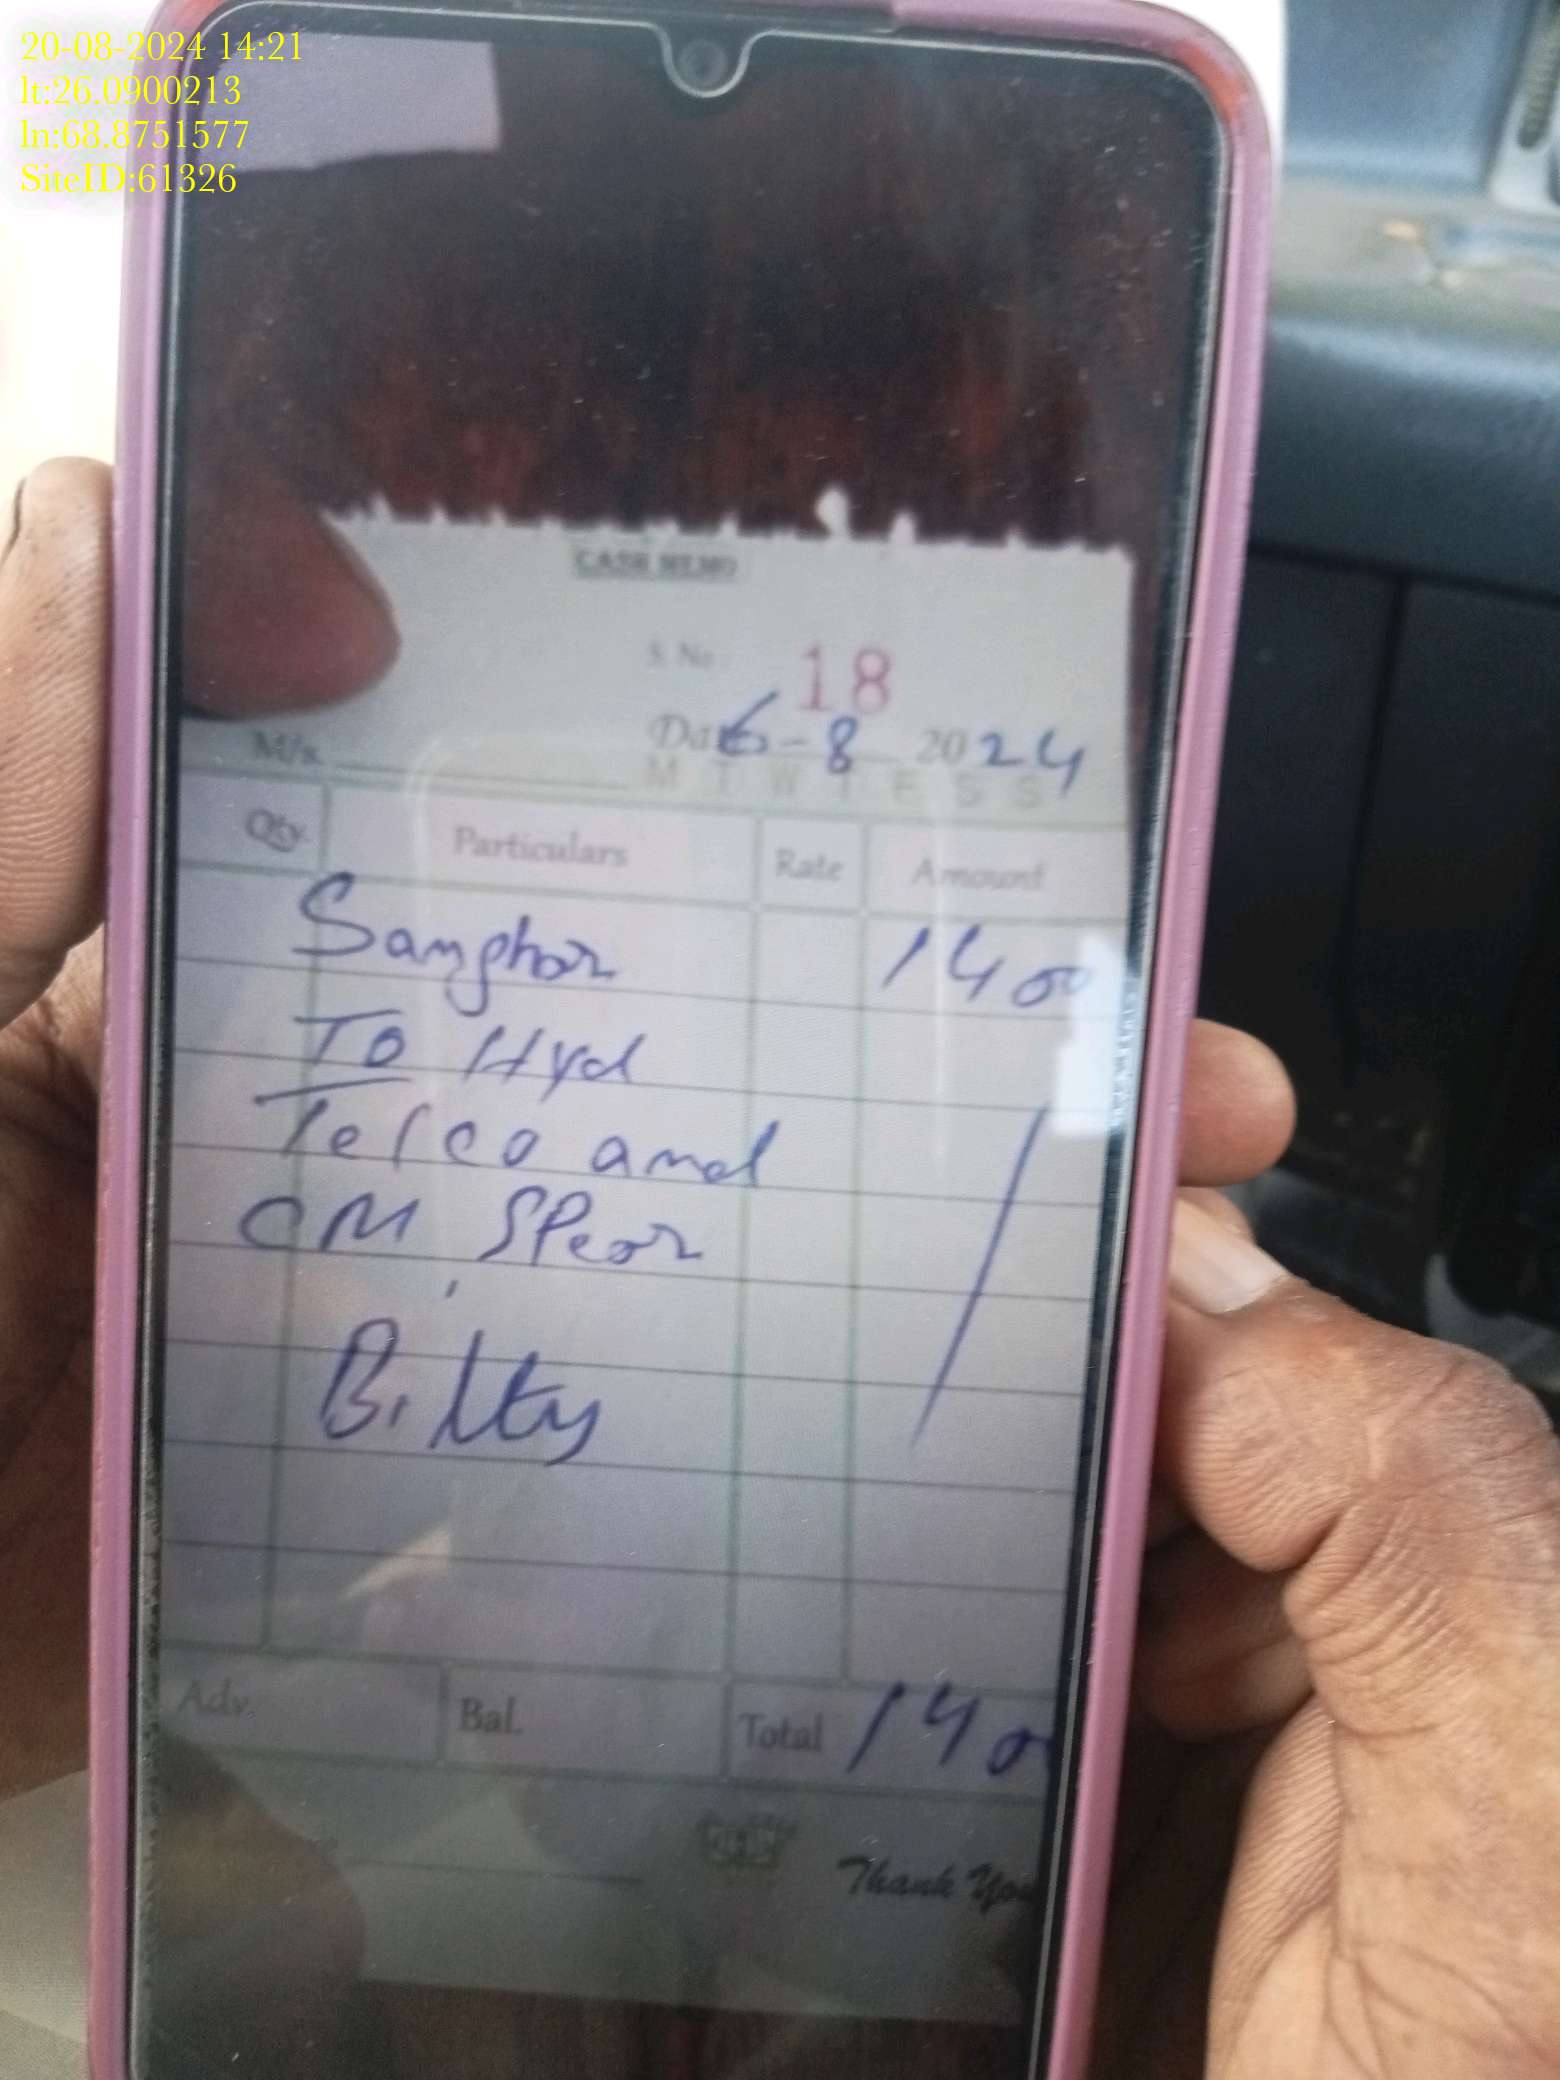 20-08-2024 14:21
lt:26.0900213
ln:68.8751577
SiteID:61326
CASH MEMO
S. No. 18
Da 6-8 2024
M/s.
M T W T F S S
Qty. Particulars Rate Amount
Sanghar 1400
To Hyd
Telco and
CM SPear
Bilty
Adv. Bal. Total 140
Thank You